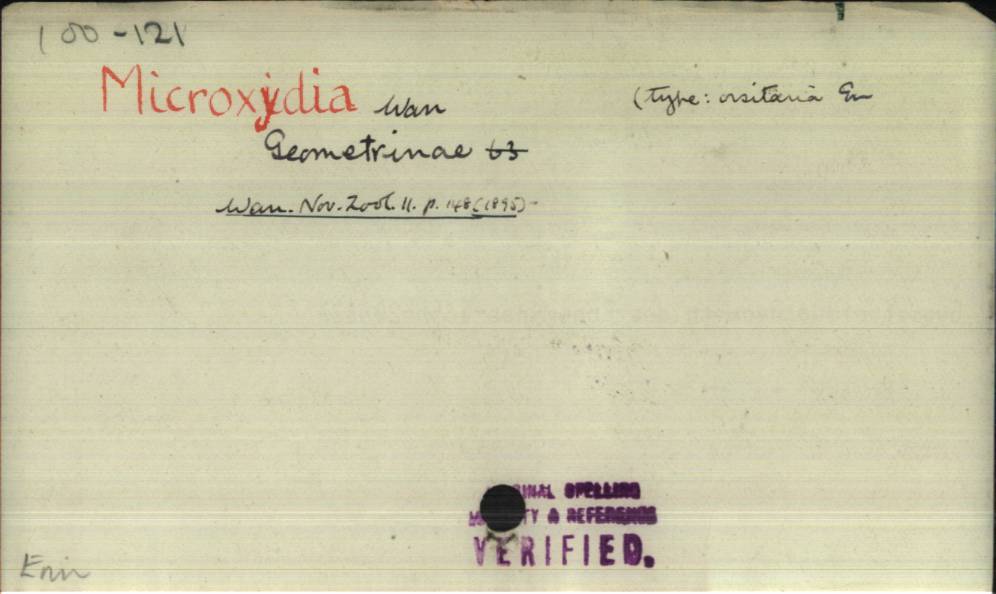 100-121
Microxydia Warr (type: orsitaria Gn
Geometrinae 63
Warr. Nov. Zool. II. p. 148 (1895)
ORIGINAL SPELLING
& REFERENCE
VERIFIED.
Enn